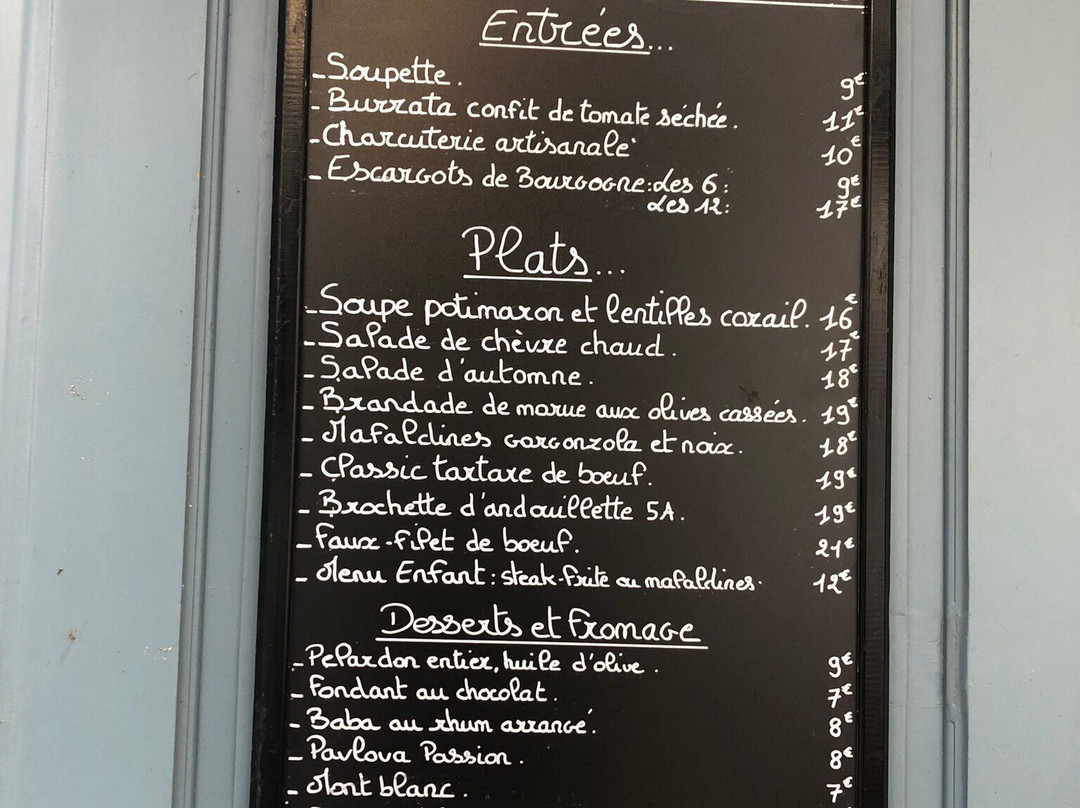 Entrées...
- Soupette. 9€
- Burrata confit de tomate séchée. 11€
- Charcuterie artisanale 10€
- Escargots de Bourgogne: Les 6: 9€
Les 12: 17€
Plats...
- Soupe potimaron et lentilles corail. 16€
- Salade de chèvre chaud. 17€
- Salade d'automne. 18€
- Brandade de morue aux olives cassées. 19€
- Mafaldines gorgonzola et noix. 18€
- Classic tartare de boeuf. 19€
- Brochette d'andouillette 5A. 19€
- Faux-filet de boeuf. 21€
- Menu Enfant: steak-frite ou mafaldines. 12€
Desserts et fromage
- Pelardon entier, huile d'olive. 9€
- Fondant au chocolat. 7€
- Baba au rhum arrangé. 8€
- Pavlova Passion. 8€
- Mont blanc. 7€